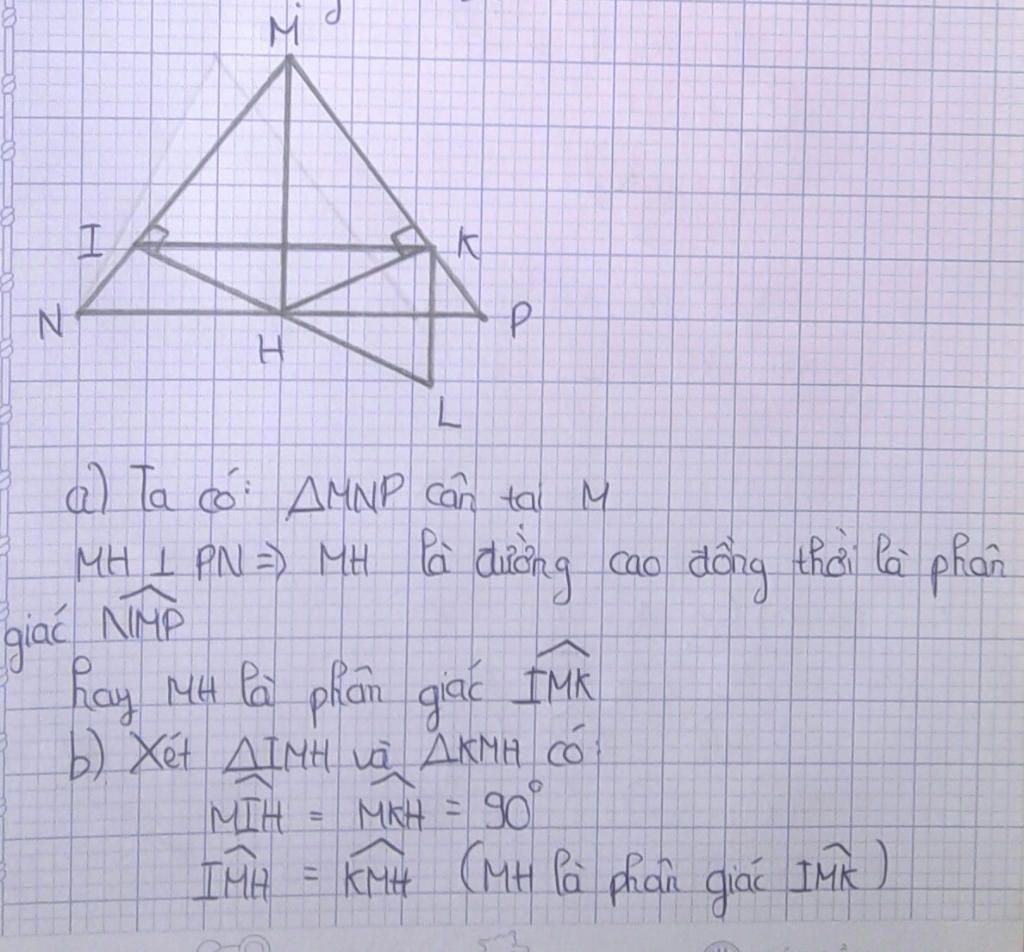 M
I
K
N
H
P
L
a) Ta có: ΔMNP cân tại M
MH ⊥ PN => MH là đường cao đồng thời là phân
giác \widehat{NMP}
hay MH là phân giác \widehat{IMK}
b) Xét ΔIMH và ΔKMH có:
\widehat{MIH} = \widehat{MKH} = 90°
\widehat{IMH} = \widehat{KMH} (MH là phân giác \widehat{IMK})